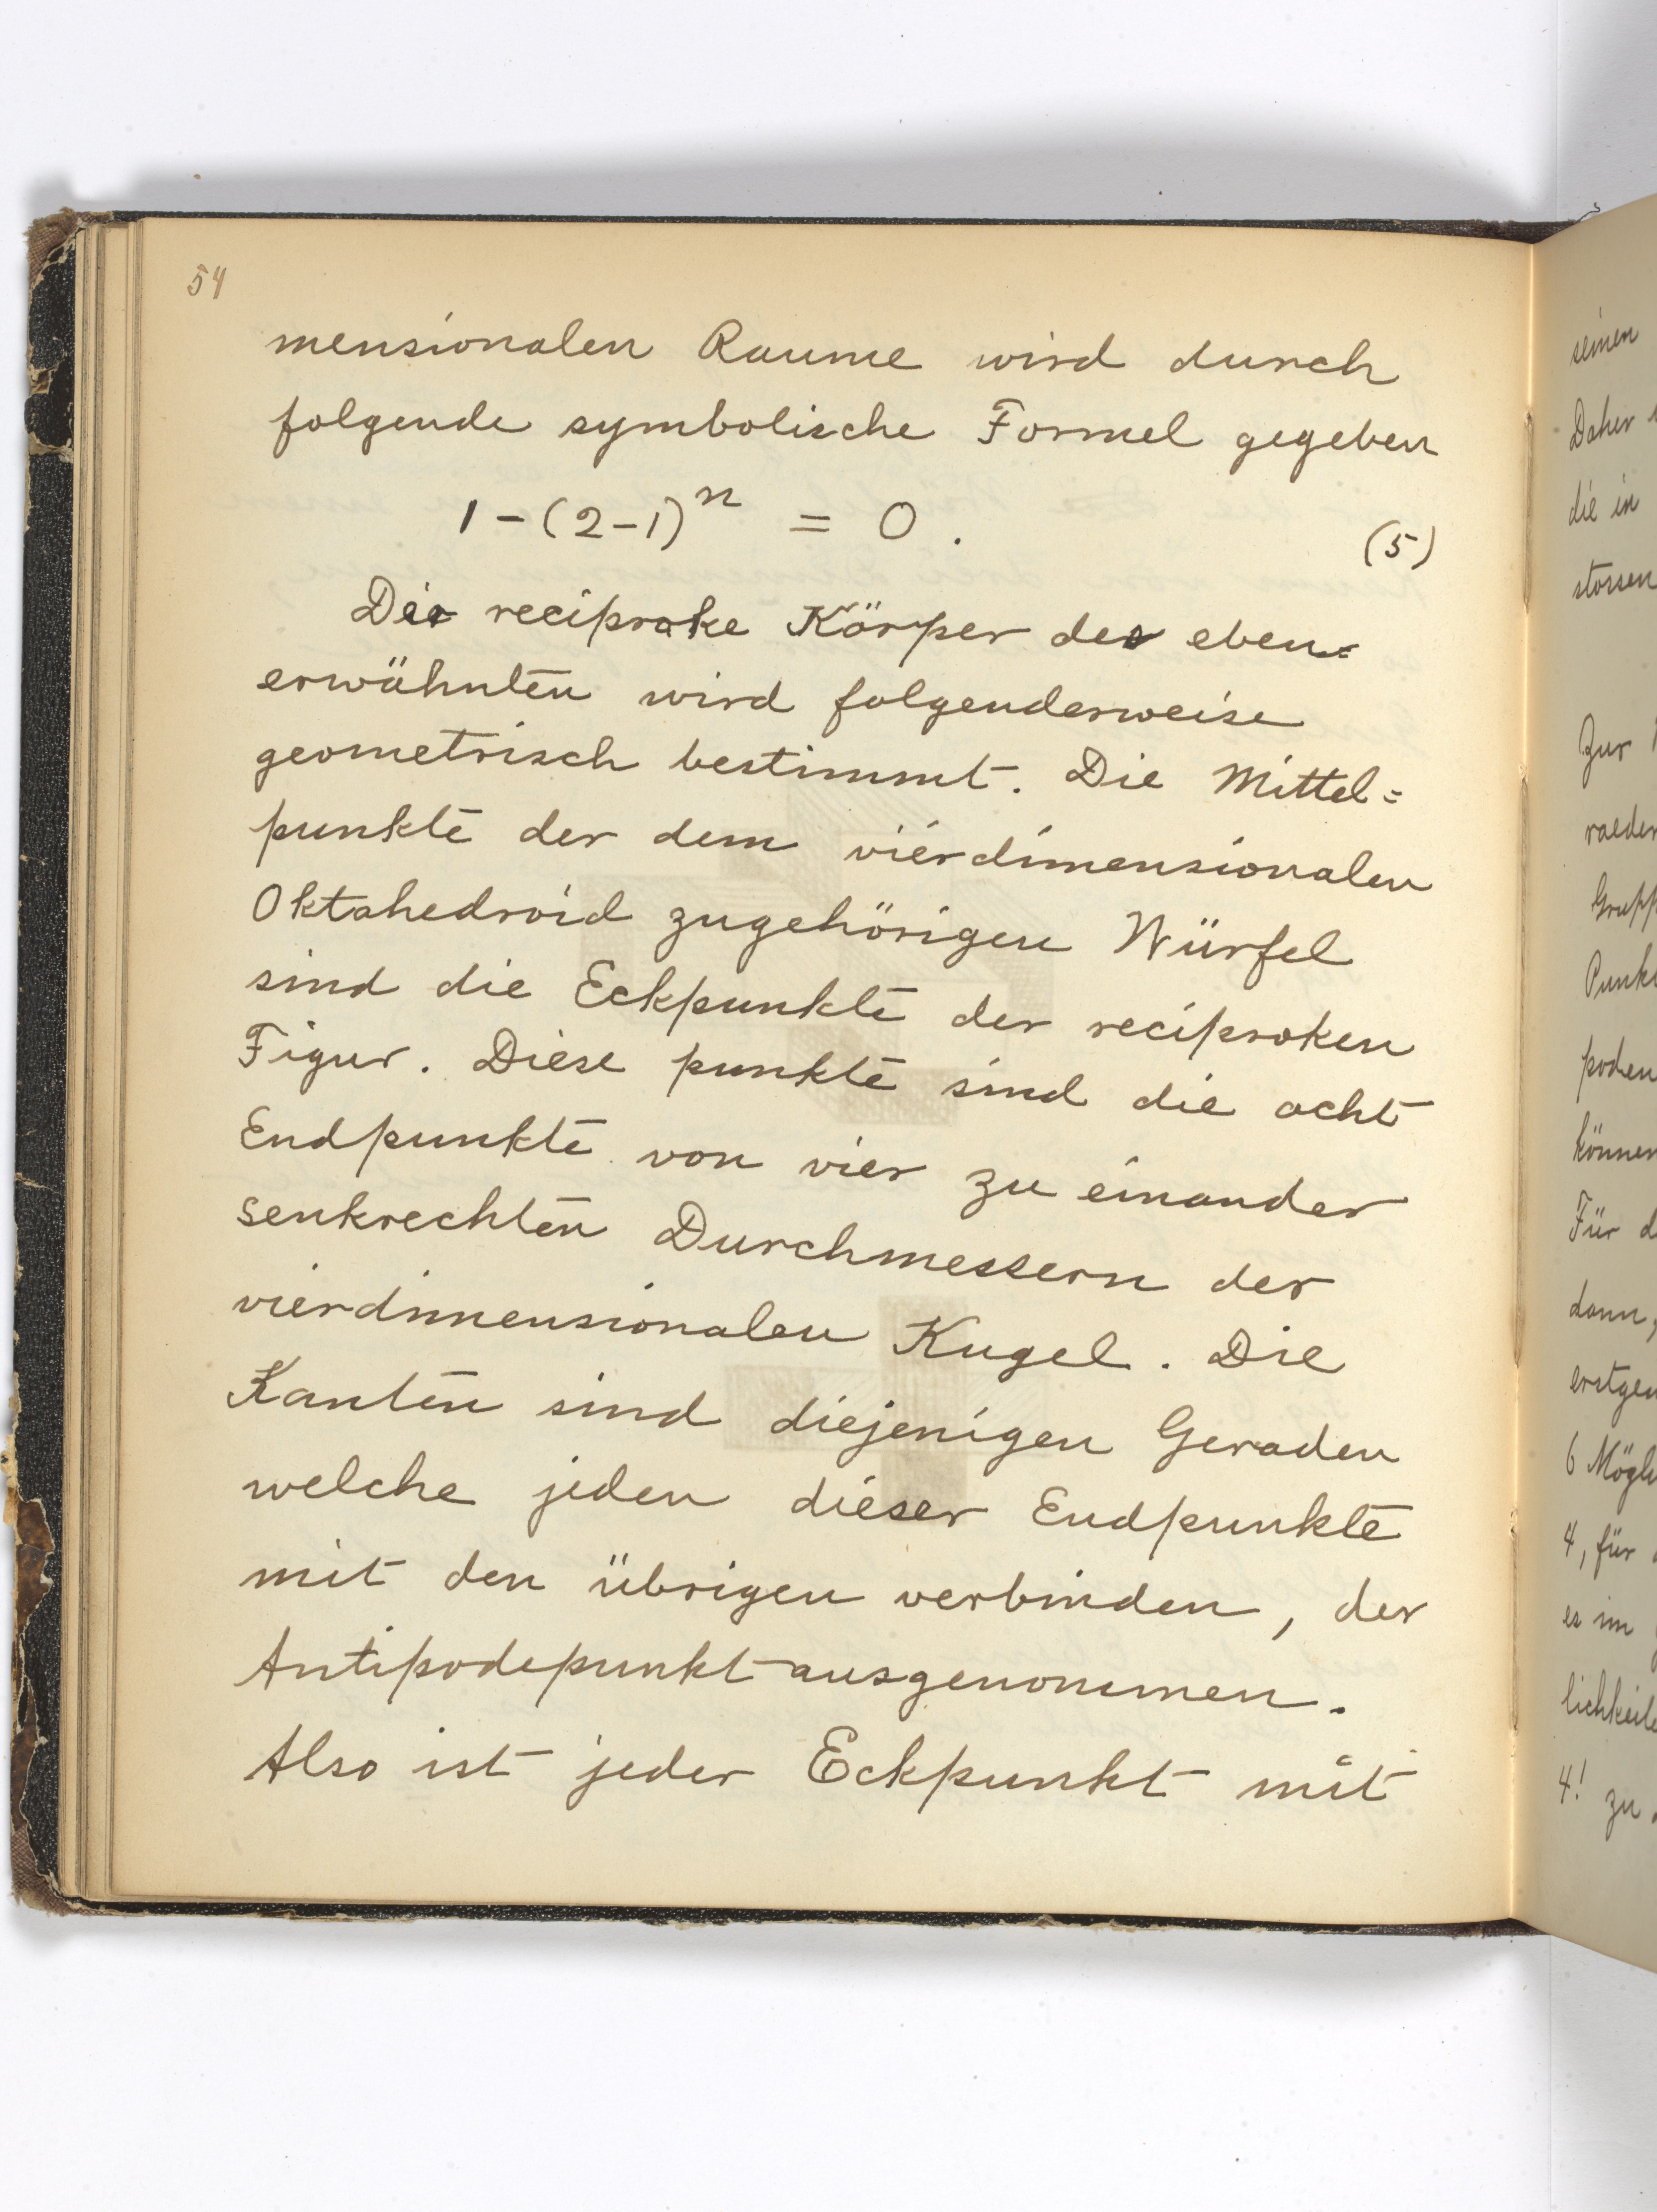 54
mensionalen Raume wird durch
folgende symbolische Formel gegeben
1-(2-1)^n = 0. (5)
Der reciproke Körper des eben=
erwähnten wird folgenderweise
geometrisch bestimmt. Die Mittel=
punkte der dem vierdimensionalen
Oktahedroid zugehörigen Würfel
sind die Eckpunkte der reciproken
Figur. Diese punkte sind die acht
Endpunkte von vier zu einander
senkrechten Durchmessern der
vierdimensionalen Kugel. Die
Kanten sind diejenigen Geraden
welche jeden dieser Endpunkte
mit den übrigen verbinden, der
Antipodepunkt ausgenommen.
Also ist jeder Eckpunkt mit
seinen
Daher
die in
stossen
Zur
raeder
Grupp
Punkt
poden
können
Für d
dann,
erstgen
6 Mögli
4, für
es im
lichkeite
4! zu